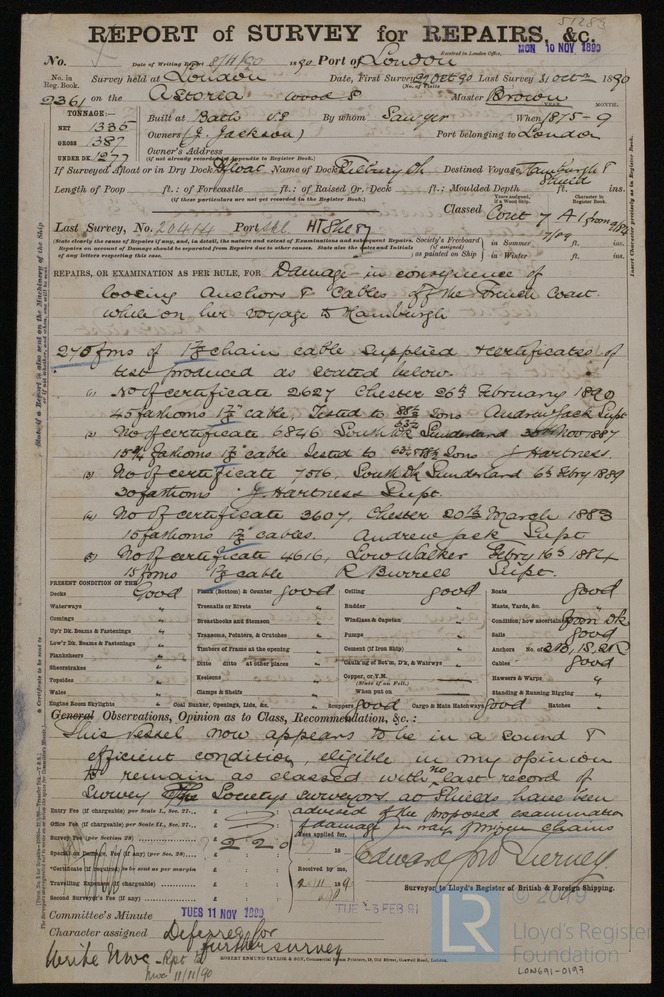 51283
REPORT of SURVEY for REPAIRS, &c.
Received in London Office, MON 10 NOV 1890
No. Date of Writing Report 8/11/90 1890 Port of London
No. in Reg. Book. Survey held at London Date, First Survey 29 Oct 90 Last Survey 31 Oct 1890
(No. of Visits
2361 on the Astoria Wood S Master Brown
TONNAGE:—
NET 1335
GROSS 1387
UNDER DK. 1277
Built at Bath US By whom Sawyer When 1875-9
YEAR. MONTH.
Owners (J. Jackson) Port belonging to London
Owner's Address
(if not already recorded in Appendix to Register Book.)
If Surveyed Afloat or in Dry Dock Afloat Name of Dock Tilbury Dk Destined Voyage Hamburgh & Shields
Length of Poop ft.: of Forecastle ft.: of Raised Qr. Deck ft.: Moulded Depth ft. ins.
(if these particulars are not yet recorded in the Register Book.)
Years assigned, if a Wood Ship. Character in Register Book.
Classed Cont 7 A1
Last Survey, No. 20414 Port Shl
(State clearly the cause of Repairs if any, and, in detail, the nature and extent of Examinations and subsequent Repairs.
Repairs on account of Damage should be separated from Repairs due to other causes. State also the dates and Initials
of any letters respecting this case.
Society's Freeboard (if assigned) as painted on Ship
in Summer ft. ins.
in Winter ft. ins.
REPAIRS, OR EXAMINATION AS PER RULE, FOR Damage in consequence of
loosing Anchors & Cables off the French Coast
while on her voyage to Hamburgh
270 fms of chain cable supplied & certificates of
test produced as stated below.
(1) No of certificate 2627 Chester 26th February 1890
45 fathoms cable, Tested to Tons Andrew Jack Supt
(2) No of certificate 6846 South Dk Sunderland Nov 1887
fathoms cable Tested to Tons J Hartness.
(3) No of certificate 7016, South Dk Sunderland 6th Febry 1889
fathoms J. Hartness Supt.
(4) No of certificate 2607, Chester 20th March 1883
15 fathoms cables. Andrew Jack Supt
(5) No of certificate 4616, Low Walker Febry 16th 1884
15 fms cable R Burrell Supt.
PRESENT CONDITION OF THE
Decks Good
Waterways "
Comings "
Up'r Dk. Beams & Fastenings "
Low'r Dk. Beams & Fastenings "
Planksheers "
Sheerstrakes "
Topsides "
Wales "
Engine Room Skylights
Plank (Bottom) & Counter good
Treenails or Rivets "
Breasthooks and Stemson "
Transoms, Pointers, & Crutches "
Timbers of Frame at the opening "
Ditto ditto at other places "
Keelsons "
Clamps & Shelfs "
Coal Bunker, Openings, Lids, &c.
Ceiling good
Rudder "
Windlass & Capstan "
Pumps "
Cement (if Iron Ship)
Caulking of Bot'm, D'k, & Watrways "
Copper, or Y.M.
(State if on Felt.)
When put on
Scuppers good Cargo & Main Hatchways good
Boats good
Masts, Yards, &c. "
Condition, how ascertained from Dk
Sails good
Anchors No. of 2B, 1S, 2K
Cables good
Hawsers & Warps "
Standing & Running Rigging "
Hatches "
General Observations, Opinion as to Class, Recommendation, &c.:
This vessel now appears to be in a sound &
efficient condition, eligible in my opinion
to remain as classed with no last record of
survey The Societys surveyors at Shields have been
advised of the proposed examination
of damage in way of mizen chains
Entry Fee (if chargeable) per Scale I., Sec. 27... £
Office Fee (if chargeable) per Scale II., Sec. 27... £
Survey Fee (per Section 28) £ 2 2 0
Special or Damage Fee (if any) (per Sec. 28) £
*Certificate (if required) to be sent as per margin
Travelling Expenses (if chargeable) £
Second Surveyor's Fee (if any) £
Fees applied for,
18
Received by me,
Surveyor to Lloyd's Register of British & Foreign Shipping.
Committee's Minute TUES 11 NOV 1890 TUE -3 FEB 91
Character assigned Deferred for
further survey
Write Nwc
Nwc 11/11/90
ROBERT EDMUND TAYLOR & SON, Commercial Steam Printers, 19, Old Street, Goswell Road, London.
© 2019
LR
Lloyd's Register
Foundation
LON691-0197